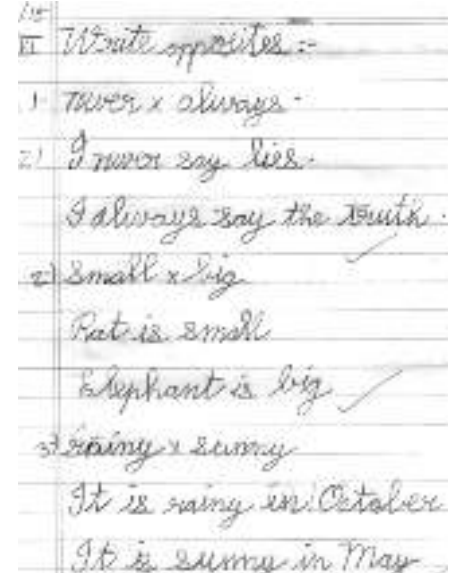 VI Write opposites :-
1. never x always.
2) I never say lies.
I always say the truth.
2) Small x big
Rat is small
Elephant is big
3) rainy x sunny
It is rainy in October
It is sunny in May